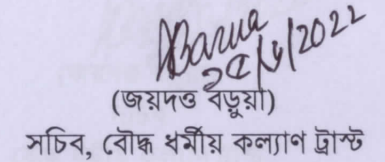 Barua
২৫/৮/2022
(জয়দত্ত বড়ুয়া)
সচিব, বৌদ্ধ ধর্মীয় কল্যাণ ট্রাস্ট